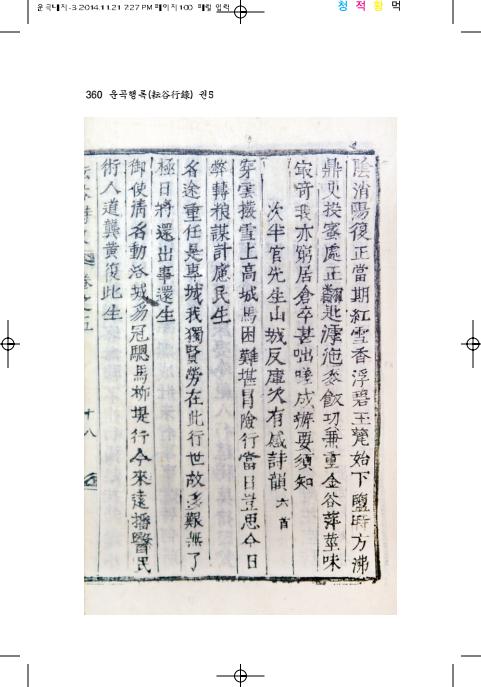 운곡내지-3 2014.11.21 7:27 PM 페이지100 매킬 입력
청 적 황 먹
360 운곡행록(耘谷行錄) 권5
陰消陽復正當期紅雪香浮碧玉甆始下鹽時方沸
鼎更投蜜處正翻匙滹沱麥飯功兼重金谷萍虀味
寂寄我亦窮居倉卒甚咄嗟成辦要須知
次半官先生山城反庫次有感詩韻 六首
穿雲擐雪上高城馬困難堪冒險行當日豈思今日
弊轉粮謀計慮民生
各途重任是專城我獨賢勞在此行世故多艱無了
極日將還出事還生
御使淸名動洛城爲冠驄馬柳堤行今來遠播醫民
術人道龔黃復此生
卷之五
十八